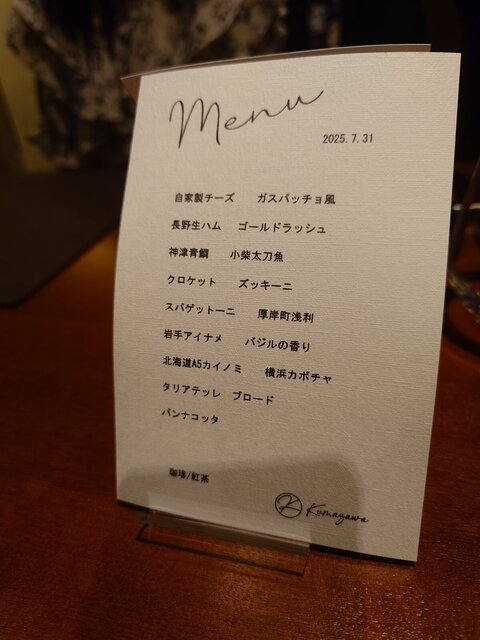 Menu
2025.7.31
自家製チーズ　ガスパッチョ風
長野生ハム　ゴールドラッシュ
神津青鯛　小柴太刀魚
クロケット　ズッキーニ
スパゲットーニ　厚岸町浅利
岩手アイナメ　バジルの香り
北海道A5カイノミ　横浜カボチャ
タリアテッレ　ブロード
パンナコッタ
珈琲/紅茶
K Kumazawa